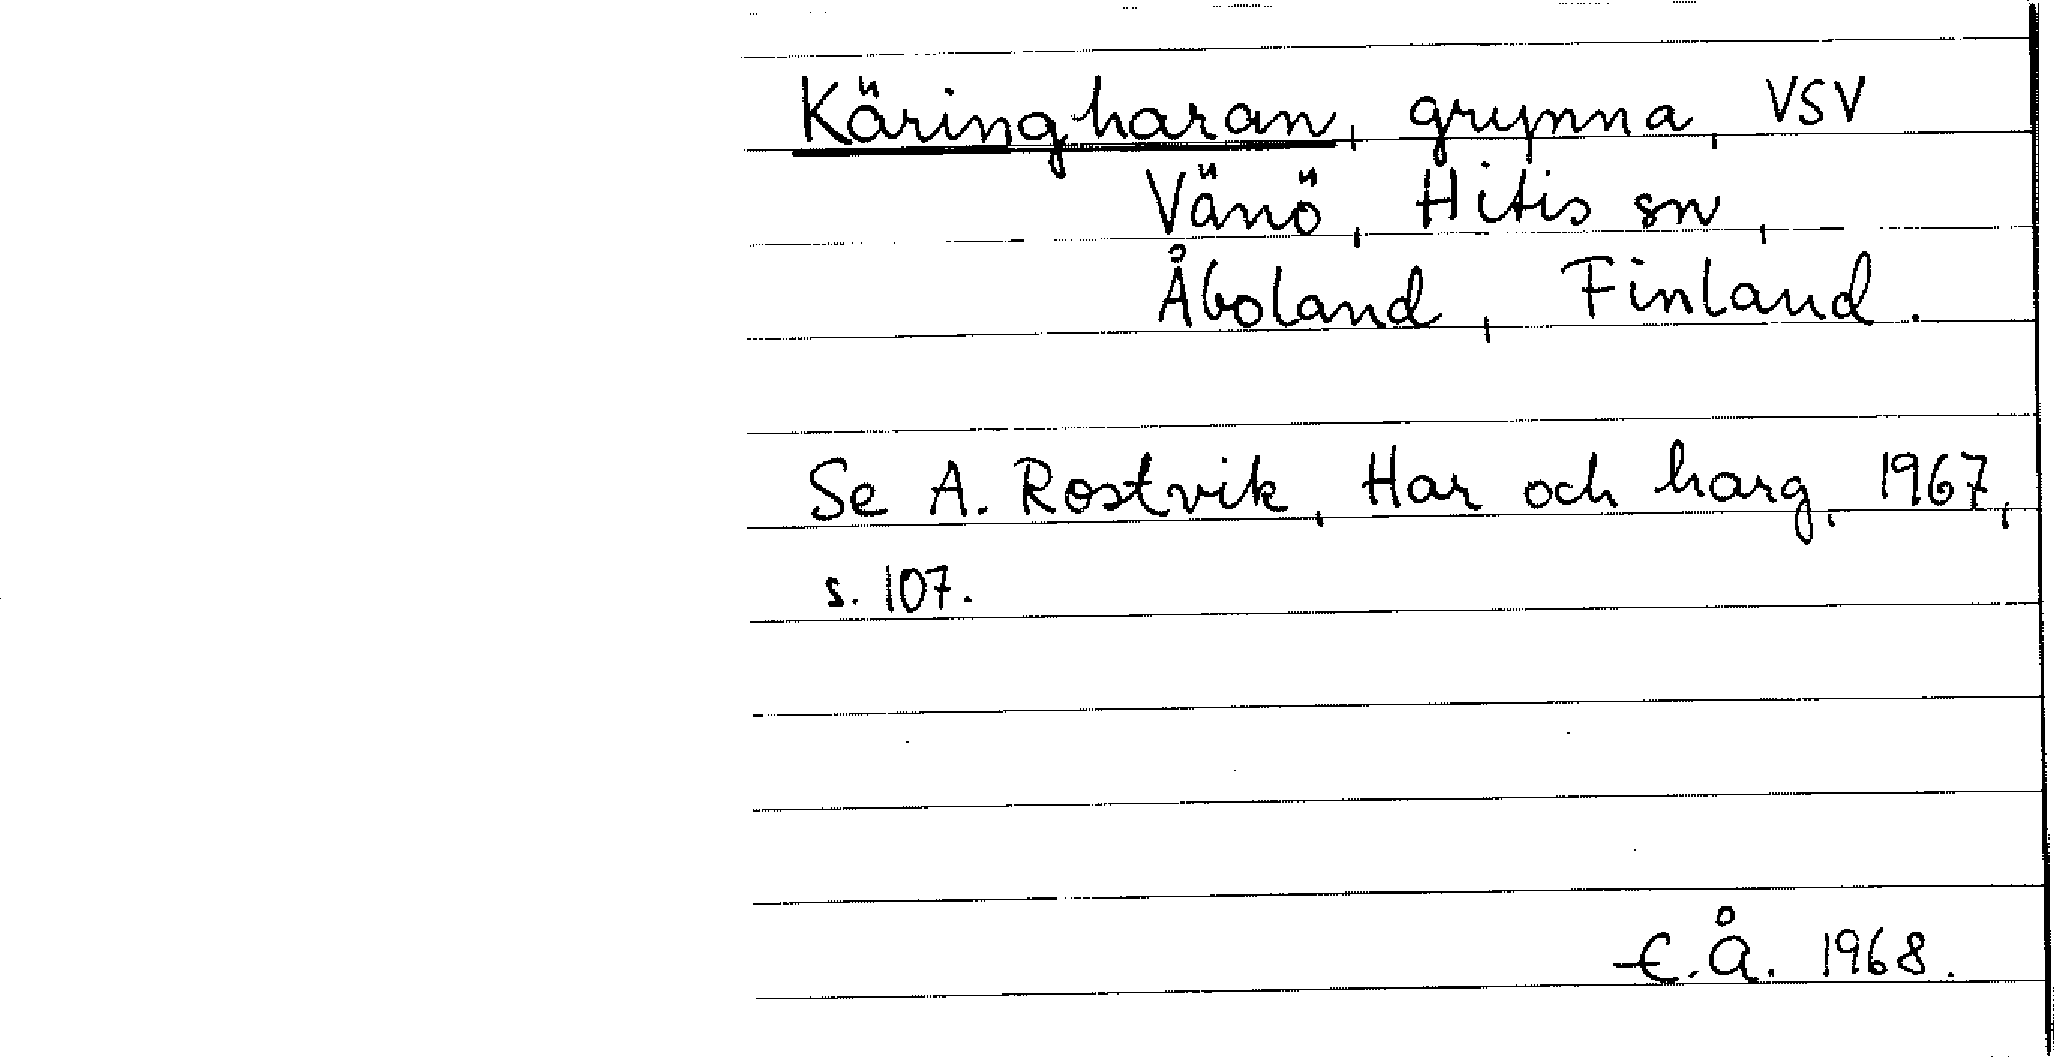 Käringharan, grynna, VSV
Vänö, Hitis sn,
Åboland, Finland.
Se A. Rostvik, Har och harg, 1967,
s. 107.
E.Å. 1968.